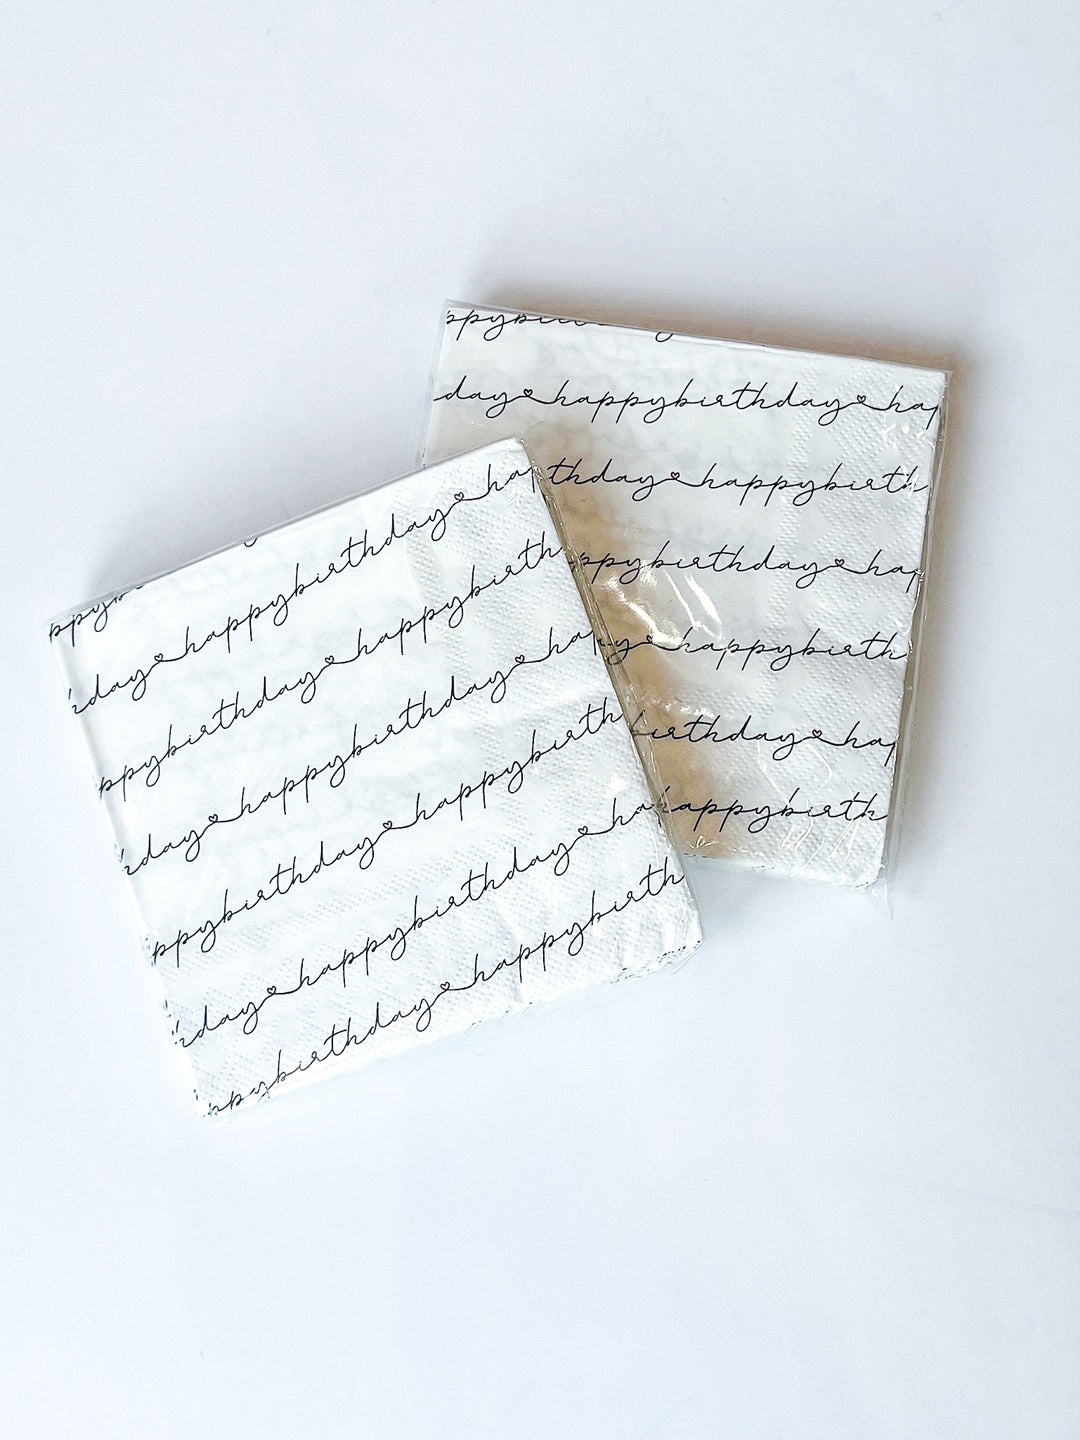 ppybi
day happybirthday hap
thday happybirth
ppybirthday hap
y happybirth
birthday hap
happybirth
ppyb
day happybirthday hap
ppybirthday happybirth
day happybirthday hap
ppybirthday happybirth
day happybirthday ha
ppybirthday happybirth